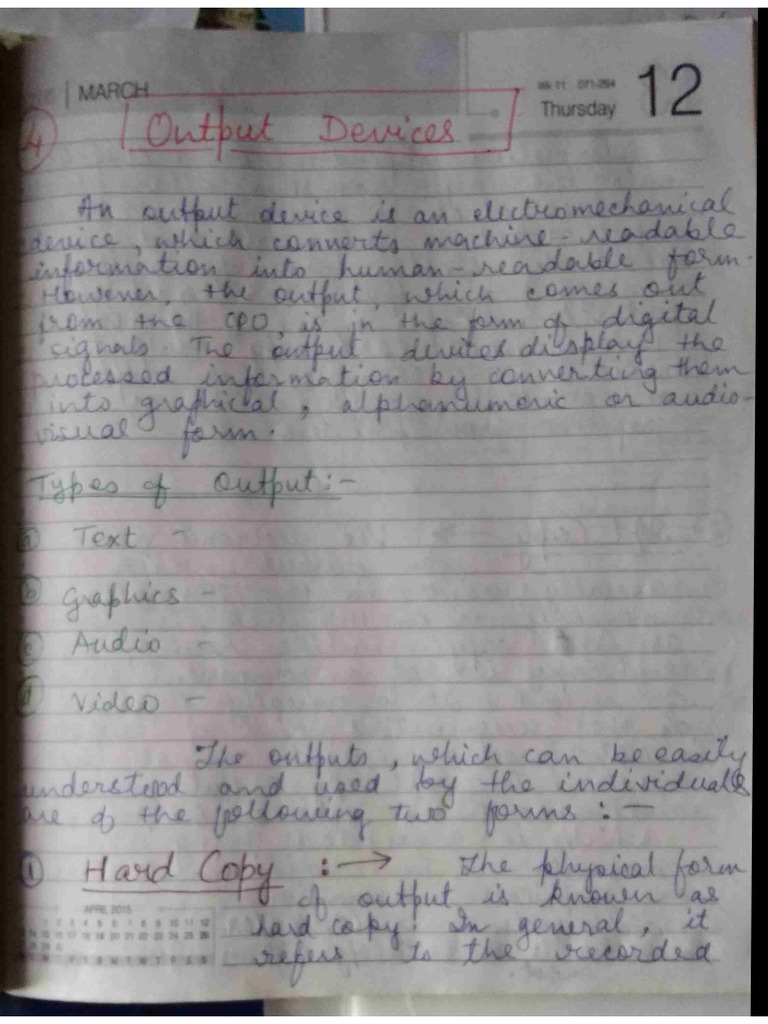 MARCH
Wk 11 071-294
Thursday 12
4 Output Devices
An output device is an electromechanical
device, which converts machine-readable
information into human-readable form.
However, the output, which comes out
from the CPU, is in the form of digital
signals. The output devices display the
processed information by converting them
into graphical, alphanumeric or audio-
visual form.
Types of Output :-
a Text -
b Graphics -
c Audio -
d Video -
The outputs, which can be easily
understood and used by the individuals
are of the following two forms : -
1 Hard Copy :→ The physical form
of output is known as
hard copy. In general, it
refers to the recorded
APRIL 2015